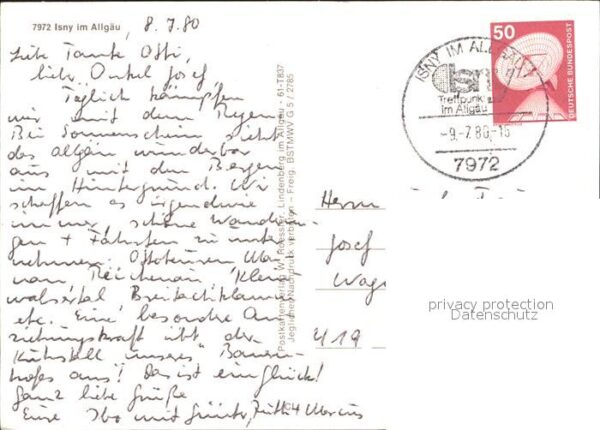 7972 Isny im Allgäu, 8.7.80
Liebe Tante Otti,
liebe Onkel Josef,
Täglich kämpfen
wir mit dem Regen
Bei Sonnenschein sieht
das Allgäu wunderbar
aus mit den Bergen
im Hintergrund. Wir
schaffen es irgendwie
immer, schöne Wanderun-
gen + Fahrten zu unter
nehmen. Ottobeuren
Reichenau, Klein
walsertal Breitachklamm
etc. Eine besondere An
ziehungskraft übt der
Kuhstall unseres Bauern-
hofes aus! Das ist ein Glück!
Ganz liebe Grüße
Eure Ibo mit Günter, Judith + Marcus
Postkartenverlag W. Roessler, Lindenberg im Allgäu - 61-T837
Jeglicher Nachdruck verboten - Freig. BSTMWV G 5 / 2785
ISNY IM ALLGÄU 1
isny
Treffpunkt
im Allgäu
-9.-7.80.-15
7972
50
DEUTSCHE BUNDESPOST
Herrn
Josef
Wag
419
privacy protection
Datenschutz